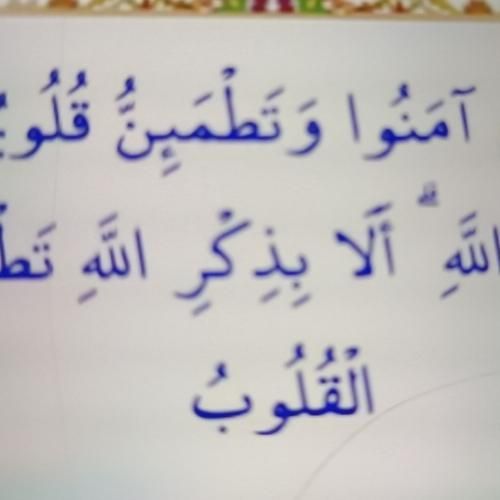 آمَنُوا وَتَطْمَئِنُّ قُلُو
اللَّهِ ۗ أَلَا بِذِكْرِ اللَّهِ تَطْ
الْقُلُوبُ